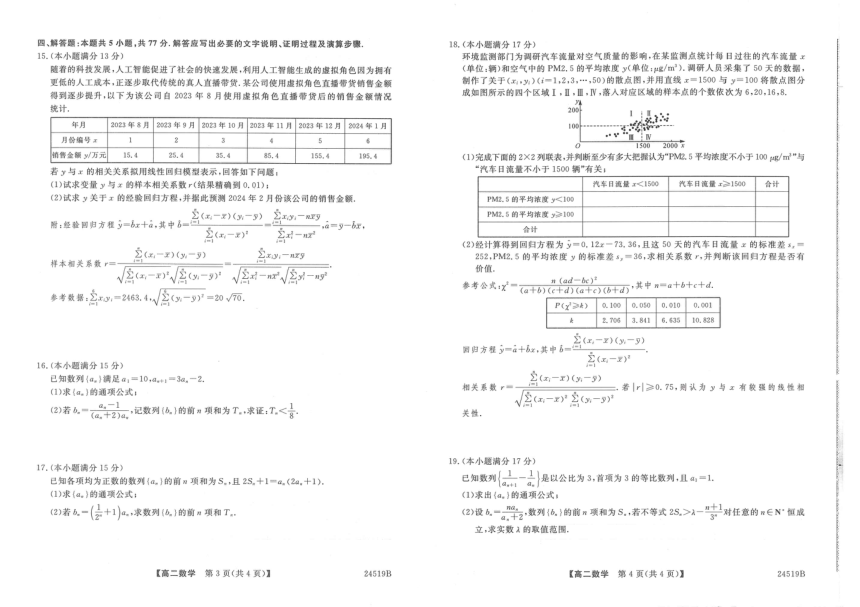 四、解答题：本题共5小题，共77分.解答应写出必要的文字说明、证明过程及演算步骤.
15.(本小题满分13分)
随着的科技发展，人工智能促进了社会的快速发展，利用人工智能生成的虚拟角色因为拥有
更低的人工成本，正逐步取代传统的真人直播带货.某公司使用虚拟角色直播带货销售金额
得到逐步提升，以下为该公司自2023年8月使用虚拟角色直播带货后的销售金额情况
统计.
年月 2023年8月 2023年9月 2023年10月 2023年11月 2023年12月 2024年1月
月份编号x 1 2 3 4 5 6
销售金额y/万元 15.4 25.4 35.4 85.4 155.4 195.4
若y与x的相关关系拟用线性回归模型表示，回答如下问题：
(1)试求变量y与x的样本相关系数r(结果精确到0.01)；
(2)试求y关于x的经验回归方程，并据此预测2024年2月份该公司的销售金额.
附：经验回归方程ŷ=b̂x+â，其中b̂=∑(xᵢ-x̄)(yᵢ-ȳ)/∑(xᵢ-x̄)²=∑xᵢyᵢ-nx̄ȳ/∑xᵢ²-nx̄²，â=ȳ-b̂x̄，
样本相关系数r=∑(xᵢ-x̄)(yᵢ-ȳ)/√∑(xᵢ-x̄)²√∑(yᵢ-ȳ)²=∑xᵢyᵢ-nx̄ȳ/√∑xᵢ²-nx̄²√∑yᵢ²-nȳ²
参考数据：∑xᵢyᵢ=2463.4，√∑(yᵢ-ȳ)²=20√70.
16.(本小题满分15分)
已知数列{aₙ}满足a₂=10，aₙ₊₁=3aₙ-2.
(1)求{aₙ}的通项公式；
(2)若bₙ=(aₙ-1)/((aₙ+2)aₙ)，记数列{bₙ}的前n项和为Tₙ，求证：Tₙ<1/8.
17.(本小题满分15分)
已知各项均为正数的数列{aₙ}的前n项和为Sₙ，且2Sₙ+1=aₙ(2aₙ+1).
(1)求{aₙ}的通项公式；
(2)若bₙ=(1/2ⁿ+1)aₙ，求数列{bₙ}的前n项和Tₙ.
【高二数学 第3页(共4页)】 24519B
18.(本小题满分17分)
环境监测部门为调研汽车流量对空气质量的影响，在某监测点统计每日过往的汽车流量x
(单位：辆)和空气中的PM2.5的平均浓度y(单位：μg/m³).调研人员采集了50天的数据，
制作了关于(xᵢ，yᵢ)(i=1,2,3,…,50)的散点图，并用直线x=1500与y=100将散点图分
成如图所示的四个区域Ⅰ、Ⅱ、Ⅲ、Ⅳ，落入对应区域的样本点的个数依次为6,20,16,8.
y
200
Ⅰ Ⅱ
100
Ⅲ Ⅳ
O 1500 2000 x
(1)完成下面的2×2列联表，并判断至少有多大把握认为“PM2.5平均浓度不小于100 μg/m³”与
“汽车日流量不小于1500辆”有关；
汽车日流量x<1500 汽车日流量x≥1500 合计
PM2.5的平均浓度y<100
PM2.5的平均浓度y≥100
合计
(2)经计算得到回归方程为ŷ=0.12x-73.36，且这50天的汽车日流量x的标准差sₓ=
252，PM2.5的平均浓度y的标准差sᵧ=36，求相关系数r，并判断该回归方程是否有
价值.
参考公式：χ²=n(ad-bc)²/(a+b)(c+d)(a+c)(b+d)，其中n=a+b+c+d.
P(χ²≥k) 0.100 0.050 0.010 0.001
k 2.706 3.841 6.635 10.828
回归方程ŷ=â+b̂x，其中b̂=∑(xᵢ-x̄)(yᵢ-ȳ)/∑(xᵢ-x̄)².
相关系数r=∑(xᵢ-x̄)(yᵢ-ȳ)/√∑(xᵢ-x̄)²∑(yᵢ-ȳ)².若|r|≥0.75，则认为y与x有较强的线性相
关性.
19.(本小题满分17分)
已知数列{1/aₙ₊₁-1/aₙ}是以公比为3，首项为3的等比数列，且a₁=1.
(1)求出{aₙ}的通项公式；
(2)设bₙ=naₙ/(aₙ+2)，数列{bₙ}的前n项和为Sₙ，若不等式2Sₙ>λ-(n+1)/3ⁿ对任意的n∈N*恒成
立，求实数λ的取值范围.
【高二数学 第4页(共4页)】 24519B